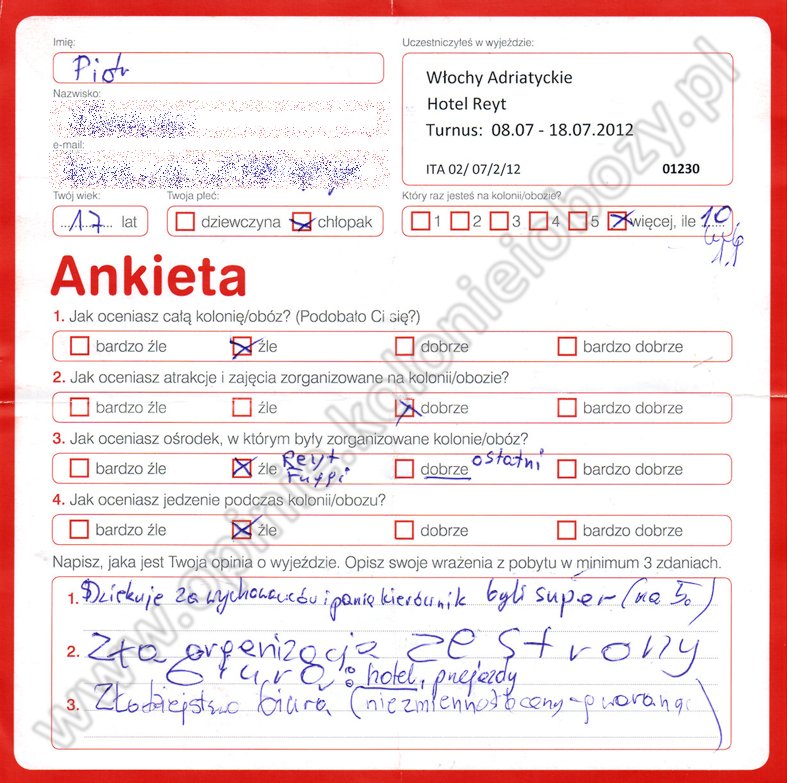 Imię:
Uczestniczyłeś w wyjeździe:
Piotr
Włochy Adriatyckie
Hotel Reyt
Turnus: 08.07 - 18.07.2012
ITA 02/ 07/2/12 01230
Nazwisko:
e-mail:
Twój wiek:
Twoja płeć:
Który raz jesteś na kolonii/obozie?
17 lat
dziewczyna chłopak
1 2 3 4 5 więcej, ile 10
Ankieta
1. Jak oceniasz całą kolonię/obóz? (Podobało Ci się?)
bardzo źle źle dobrze bardzo dobrze
2. Jak oceniasz atrakcje i zajęcia zorganizowane na kolonii/obozie?
bardzo źle źle dobrze bardzo dobrze
3. Jak oceniasz ośrodek, w którym były zorganizowane kolonie/obóz?
bardzo źle źle Reyt dobrze ostatni bardzo dobrze
4. Jak oceniasz jedzenie podczas kolonii/obozu?
bardzo źle źle dobrze bardzo dobrze
Napisz, jaka jest Twoja opinia o wyjeździe. Opisz swoje wrażenia z pobytu w minimum 3 zdaniach.
1. Dziękuję za wychowawców i panią kierownik byli super (na 5.)
2. Zła organizacja ze strony
biura: hotel, przejazdy
3. Złodziejstwo biura (niezmienność ceny - gwarancja)
www.opinie.kolonieiobozy.pl